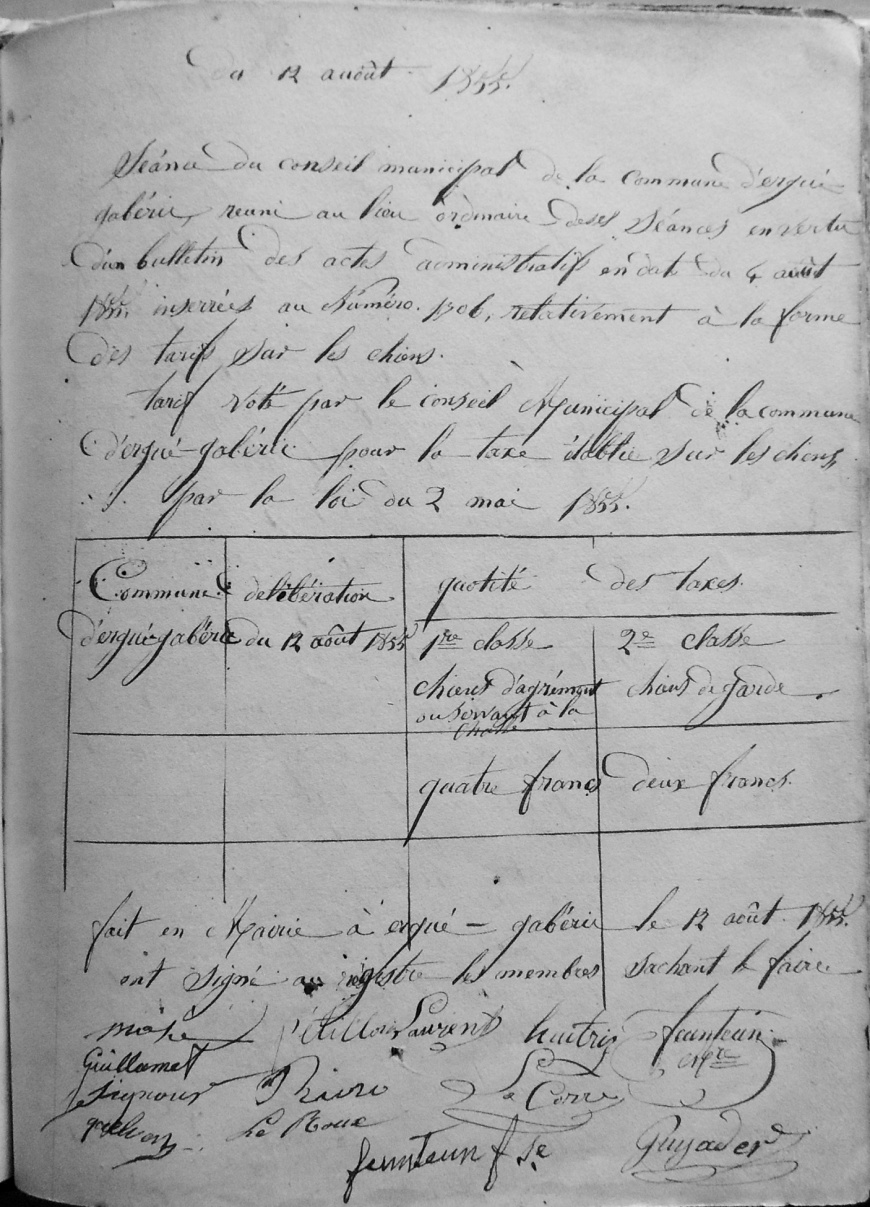 Du 12 août 1855.
Séance du conseil municipal de la commune d'ergué
gabéric, reuni au lieu ordinaire deses séances en vertu
d'un bulletin des actes administratifs en date du 4 août
1855, inserrées au Numéro. 1306, relativement à la forme
des tarifs sur les chiens.
tarif voté par le conseil Municipal de la commune
d'ergué-gabéric pour la taxe établie sur les chiens
par la loi du 2 mai 1855.
Commune délibération quotité des taxes.
d'ergué-gabéric du 12 août 1855 1re classe 2e classe
chiens d'agrément chiens de garde
ou servant à la
chasse
quatre francs deux francs.
fait en Mairie à ergué-gabéric le 12 août 1855.
ont signé au régistre les membres sachant le faire
mahé Laurent huitric feunteun
Guillamet mre
Signour Riou Le Corre
Le Roux
feunteun fse Guyader